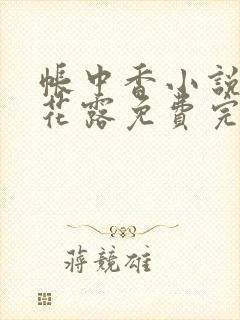 帳中香小說
花露免費完
蔣競雄